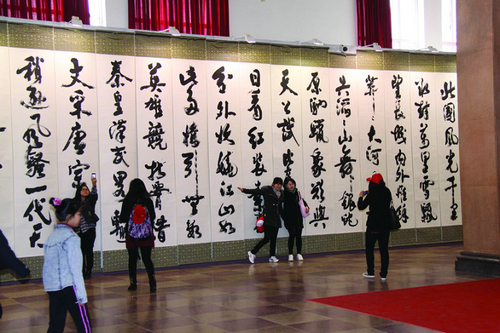 北國風光千里
冰封萬里雪飄
望長城內外惟餘
莽〻大河
失滔〻山舞銀蛇
原馳蠟象欲與
天公試比高
日看紅裝素裹
分外妖嬈江山如
此多嬌引無數
英雄競折腰惜
秦皇漢武
文采唐宗
稍遜風騷一代天